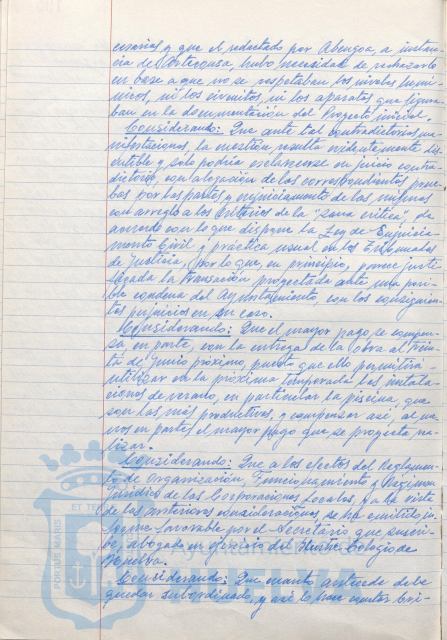 cesarias y que el redactado por Abengoa, a instan-
cia de Corteconsa, hubo necesidad de rechazarlo
en base a que no se respetaban los niveles lumí-
nicos, ni los circuitos, ni los aparatos que figura-
ban en la documentación del Proyecto inicial.
Considerando: Que ante tal contradictorias ma-
nifestaciones, la cuestión resulta evidentemente dis-
cutible y solo podría esclarecerse en juicio contra-
dictorio, con alegación de las correspondientes prue-
bas por las partes y enjuiciamiento de las mismas
con arreglo a los criterios de la "sana crítica", de
acuerdo con lo que dispone la Ley de Enjuicia-
miento Civil y práctica usual en los Tribunales
de Justicia, por lo que, en principio, parece justi-
ficada la transación proyectada ante una posi-
ble condena del Ayuntamiento, con los consiguien-
tes perjuicios en su caso.
Considerando: Que el mayor pago se compen-
sa, en parte, con la entrega de la obra al trein-
ta de Junio próximo, puesto que ello permitirá
utilizar en la próxima temporada las instala-
ciones de verano, en particular la piscina, que
son las más productivas, y compensar así al me-
nos en partes el mayor pago que se proyecta re-
alizar.
Considerando: Que a los efectos del Reglamen-
to de Organización, Funcionamiento y Régimen
Jurídico de las Corporaciones Locales, y a la vista
de las anteriores consideraciones, se ha emitido in-
forme favorable por el Secretario que suscri-
be, abogado en ejercicio del Ilustre Colegio de
Huelva.
Considerando: Que cuanto antecede debe
quedar subordinado, y así lo hace constar
PORTUS MARIS ET TE
HUELVA